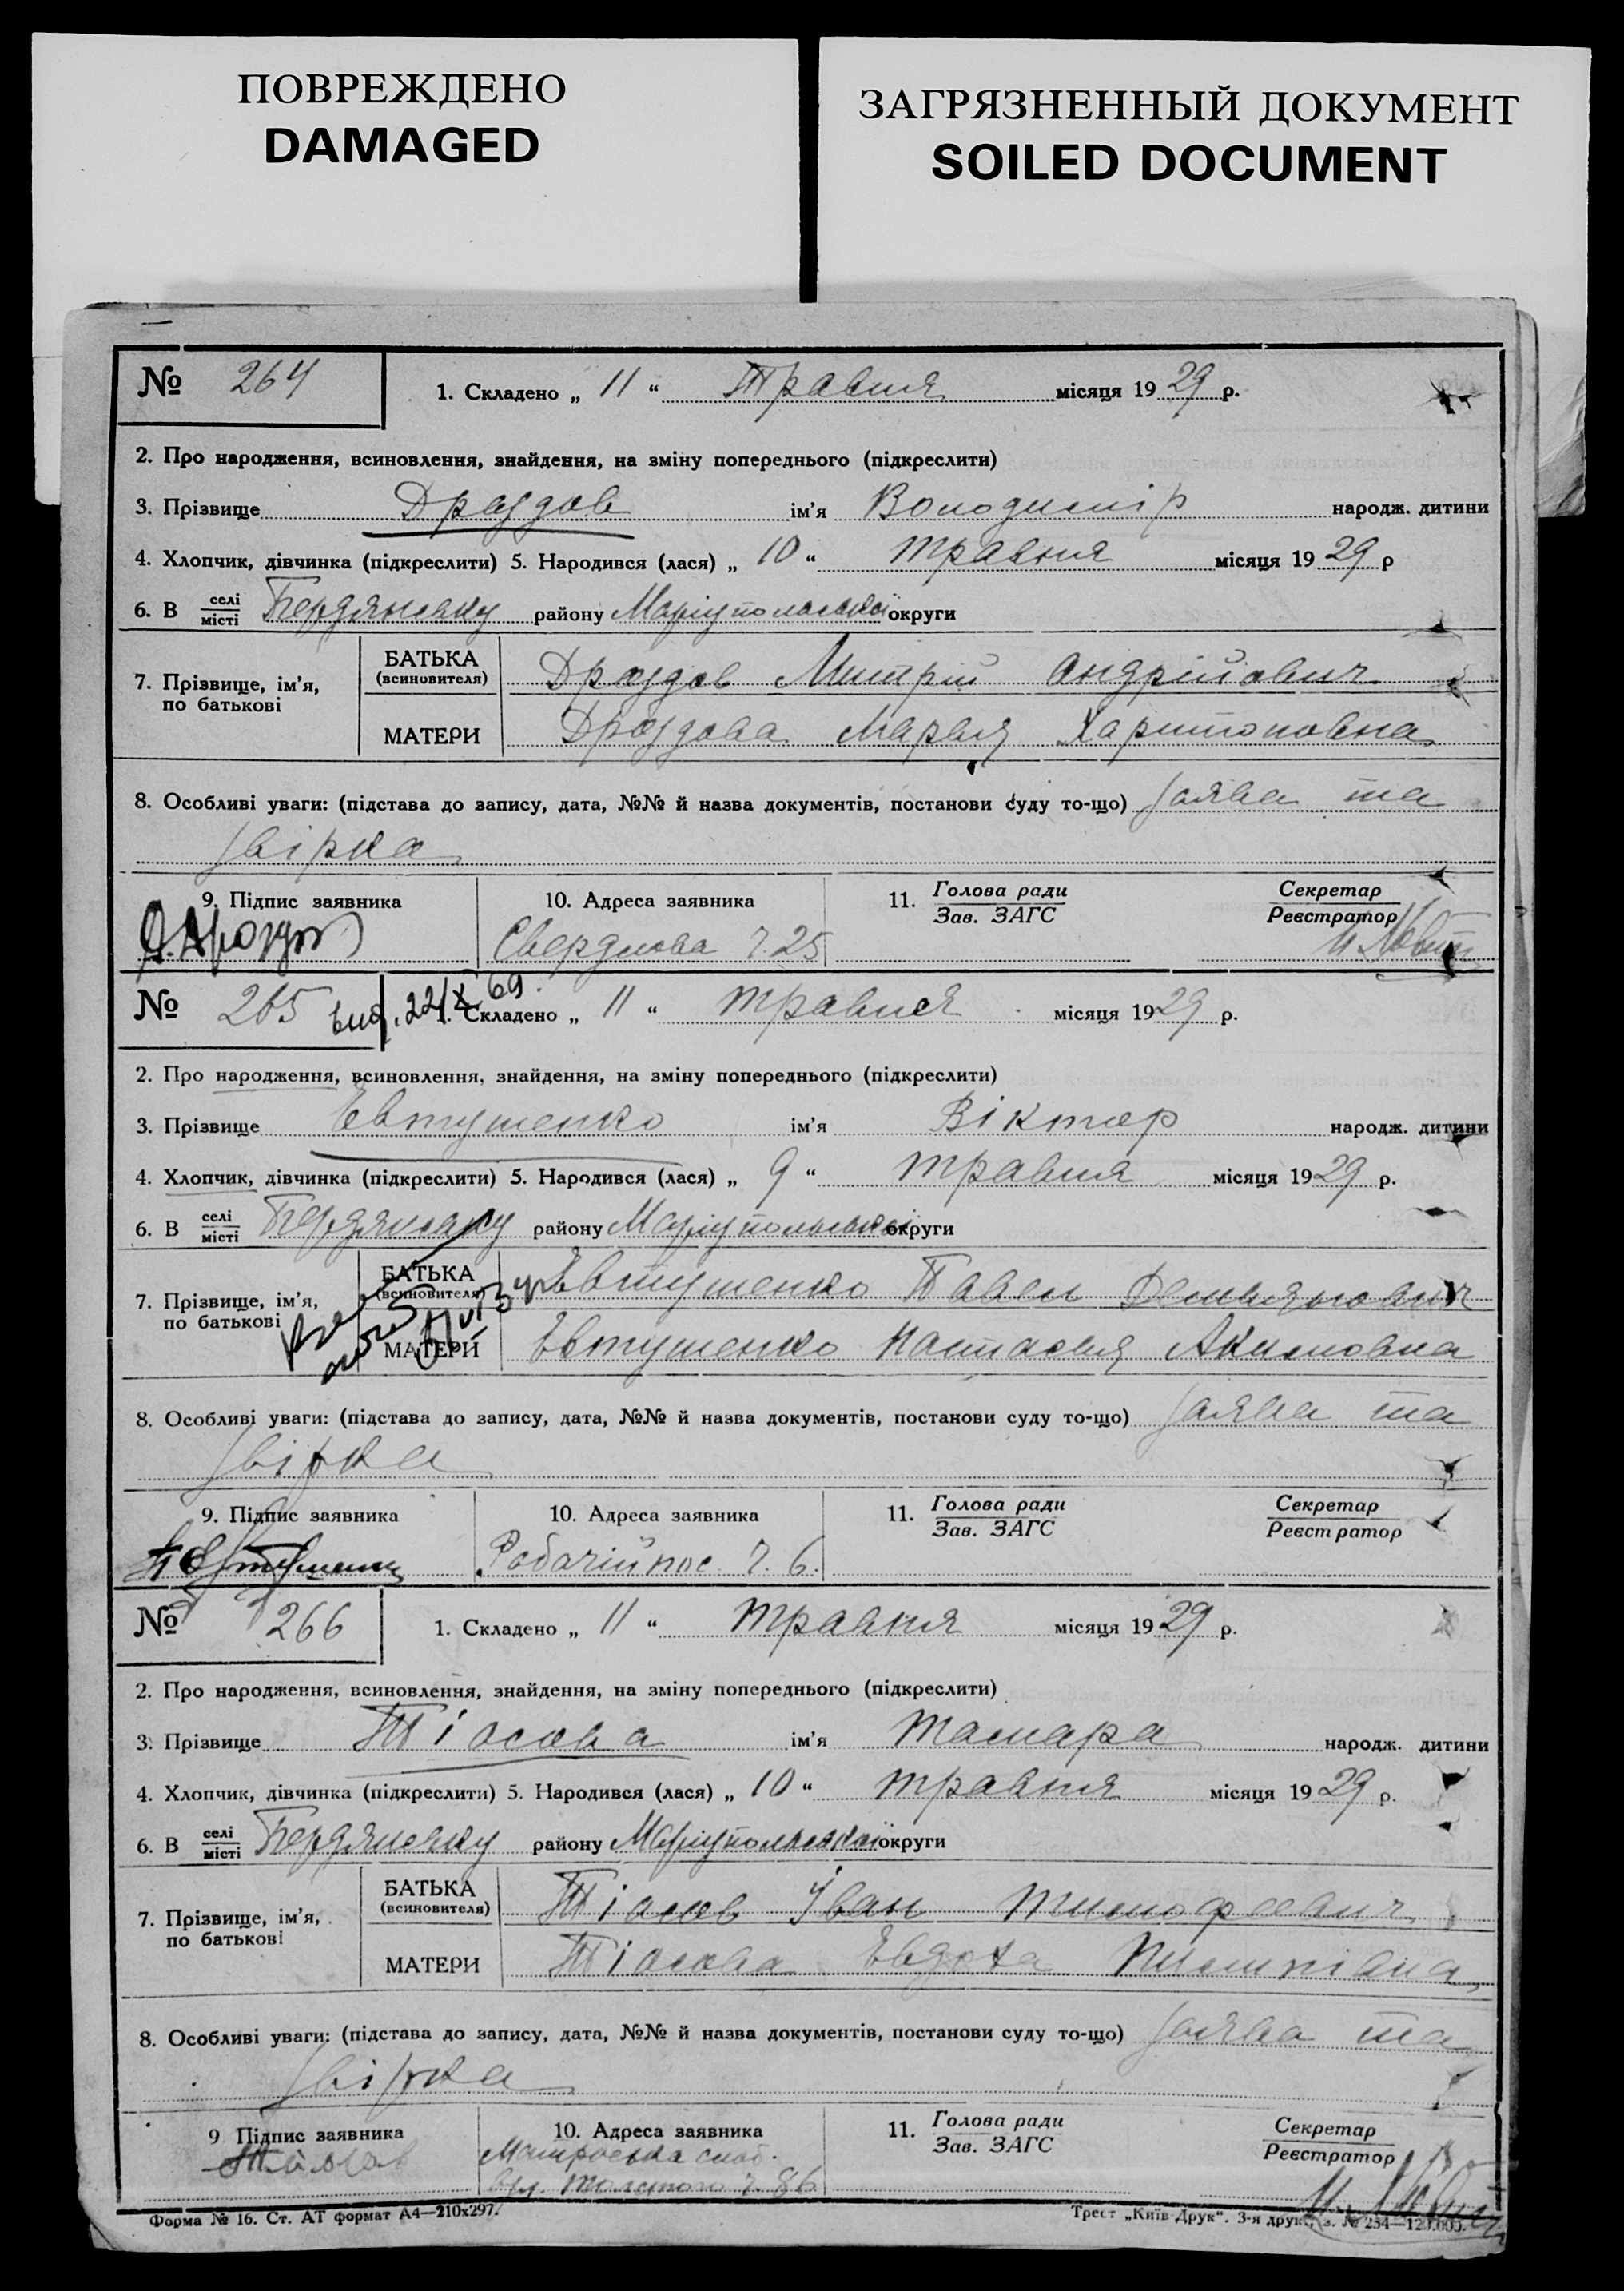 ПОВРЕЖДЕНО
DAMAGED
ЗАГРЯЗНЕННЫЙ ДОКУМЕНТ
SOILED DOCUMENT
№ 264
1. Складено „ 11 “ Травня місяця 1929 р.
2. Про народження, всиновлення, знайдення, на зміну попереднього (підкреслити)
3. Прізвище Дроздов ім'я Володимір народж. дитини
4. Хлопчик, дівчинка (підкреслити) 5. Народився (лася) „ 10 “ травня місяця 1929 р
6. В селі місті Бердянську району Маріупольської округи
7. Прізвище, ім'я, по батькові
БАТЬКА (всиновителя) Дроздов Митрій Андрійович
МАТЕРИ Дроздова Марья Харитоновна
8. Особливі уваги: (підстава до запису, дата, №№ й назва документів, постанови суду то-що) заява та
звірка
9. Підпис заявника 10. Адреса заявника 11. Голова ради Зав. ЗАГС Секретар Реєстратор
Д. Дроздов Свердлова ч. 25
№ 265 вид. 22/X 69.
1. Складено „ 11 “ травня місяця 1929 р.
2. Про народження, всиновлення, знайдення, на зміну попереднього (підкреслити)
3. Прізвище Евтушенко ім'я Віктор народж. дитини
4. Хлопчик, дівчинка (підкреслити) 5. Народився (лася) „ 9 “ травня місяця 1929 р.
6. В селі місті Бердянську району Маріупольської округи
7. Прізвище, ім'я, по батькові
БАТЬКА (всиновителя) Евтушенко Павел Демьянович
МАТЕРИ Евтушенко Настасья Акимовна
8. Особливі уваги: (підстава до запису, дата, №№ й назва документів, постанови суду то-що) заява та
звірка
9. Підпис заявника 10. Адреса заявника 11. Голова ради Зав. ЗАГС Секретар Реєстратор
П Евтушенко Робочій пос. ч. 6.
№ 266
1. Складено „ 11 “ травня місяця 1929 р.
2. Про народження, всиновлення, знайдення, на зміну попереднього (підкреслити)
3. Прізвище Тіосова ім'я Тамара народж. дитини
4. Хлопчик, дівчинка (підкреслити) 5. Народився (лася) „ 10 “ травня місяця 1929 р.
6. В селі місті Бердянську району Маріупольської округи
7. Прізвище, ім'я, по батькові
БАТЬКА (всиновителя) Тіосов Іван Тимофеевич
МАТЕРИ Тіосова Евдоха
8. Особливі уваги: (підстава до запису, дата, №№ й назва документів, постанови суду то-що) заява та
звірка
9 Підпис заявника 10. Адреса заявника 11. Голова ради Зав. ЗАГС Секретар Реєстратор
Матроська слоб.
вул. Толстого ч. 86
Форма № 16. Ст. АТ формат А4—210х297. Трест „Київ-Друк“. 3-я друк.